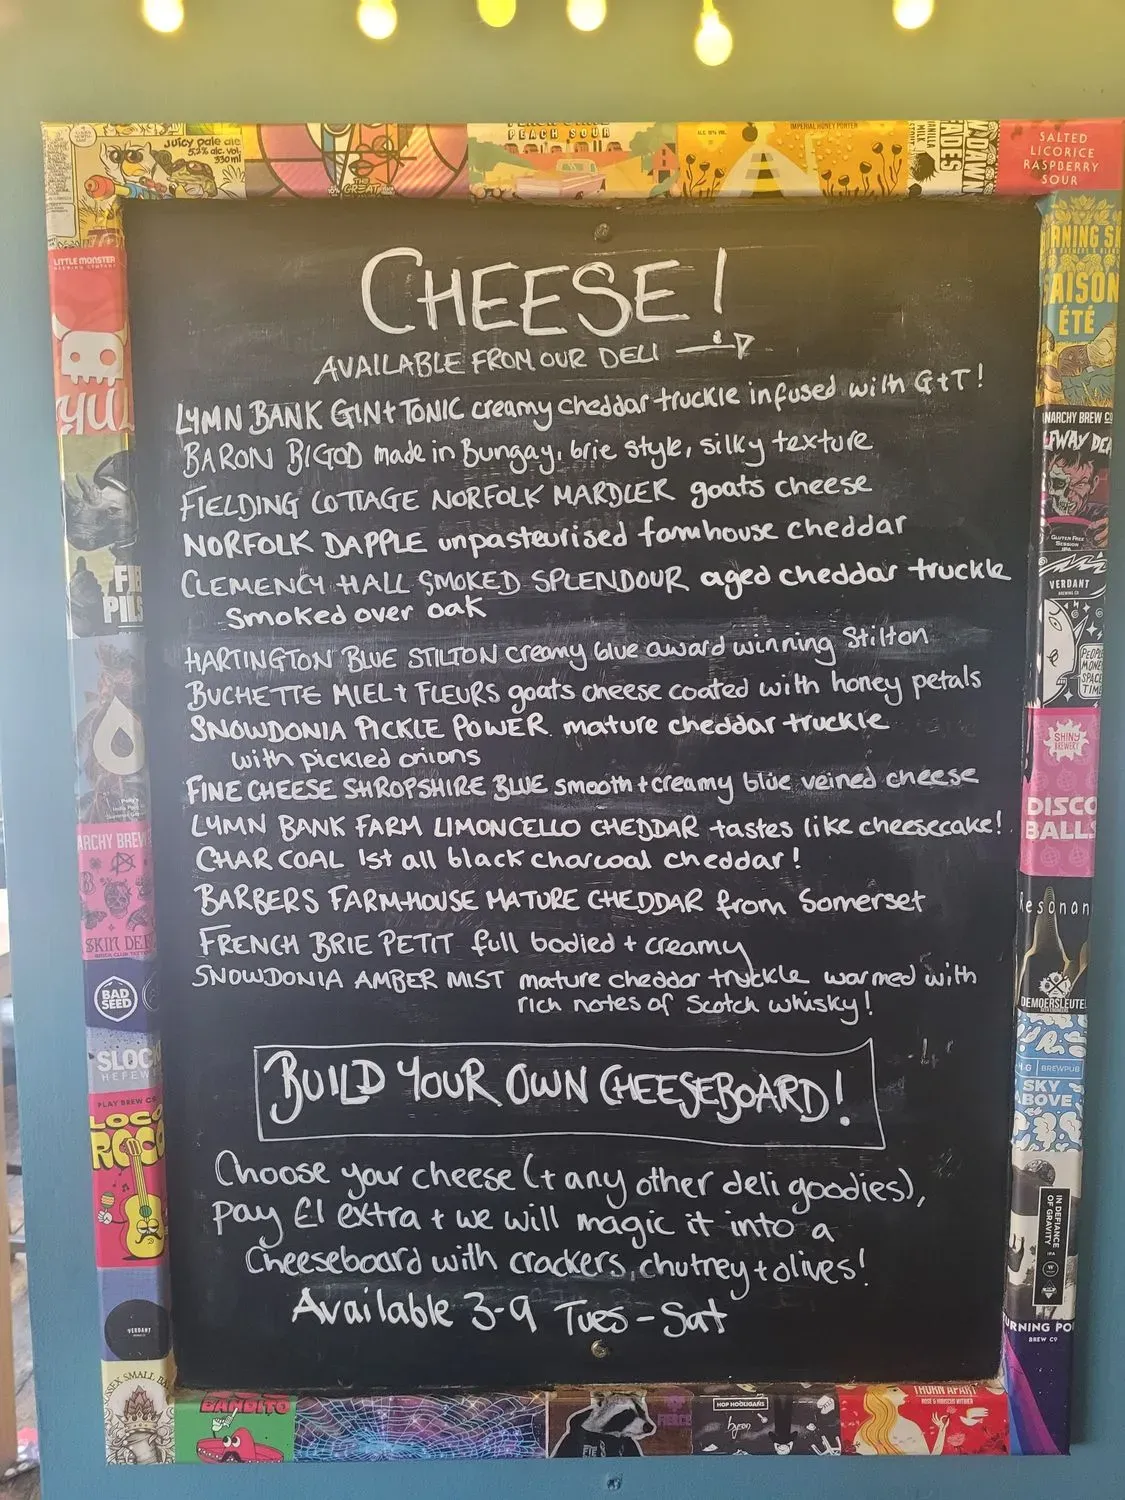 Juicy pale ale
5.2% alc. vol.
330ml
THE GREAT
PEACH SOUR
ALC. 10% VOL.
IMPERIAL HONEY PORTER
SALTED
LICORICE
RASPBERRY
SOUR
LITTLE MONSTER
BREWING COMPANY
CHEESE!
AVAILABLE FROM OUR DELI
LYMN BANK GIN+TONIC creamy cheddar truckle infused with G+T!
BARON BIGOD made in Bungay, brie style, silky texture
FIELDING COTTAGE NORFOLK MARDLER goats cheese
NORFOLK DAPPLE unpasteurised farmhouse cheddar
CLEMENCY HALL SMOKED SPLENDOUR aged cheddar truckle
smoked over oak
HARTINGTON BLUE STILTON creamy blue award winning Stilton
BUCHETTE MIEL + FLEURS goats cheese coated with honey petals
SNOWDONIA PICKLE POWER. mature cheddar truckle
with pickled onions
FINE CHEESE SHROPSHIRE BLUE smooth + creamy blue veined cheese
LYMN BANK FARM LIMONCELLO CHEDDAR tastes like cheesecake!
CHARCOAL 1st all black charcoal cheddar!
BARBERS FARMHOUSE MATURE CHEDDAR from Somerset
FRENCH BRIE PETIT full bodied + creamy
SNOWDONIA AMBER MIST mature cheddar truckle warmed with
rich notes of Scotch whisky!
BUILD YOUR OWN CHEESEBOARD!
Choose your cheese (+ any other deli goodies),
pay £1 extra + we will magic it into a
Cheeseboard with crackers, chutney + olives!
Available 3-9 Tues - Sat
SAISON
ÉTÉ
NARCHY BREW C
GLUTEN FREE
SESSION
IPA
VERDANT
BREWING CO
PEOPLE
MONEY
SPACE
TIME
SHINY
BREWERY
DISCO
BALLS
Resonan
DEMOERSLEUTE
BREWPUB
SKY
ABOVE
IN DEFIANCE
OF GRAVITY
IPA
URNING PO
BREW CO
ARCHY BREW
SKIN DEE
BAD
SEED
SLOC
HEFEW
PLAY BREW CO
LOCO
ROCO
VERDANT
SSEX SMALL BA
BANDITO
HOP HOOLIGANS
byron
THORN APART
ROSE & HIBISCUS WITBIER